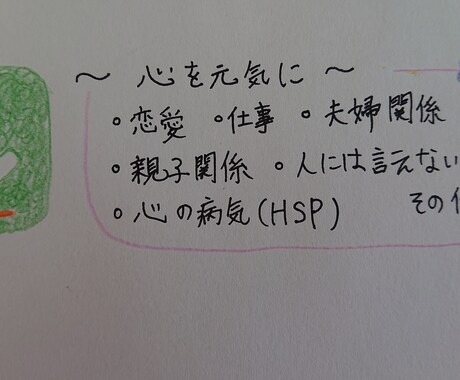 ～ 心を元気に ～
・恋愛 ・仕事 ・夫婦関係
・親子関係 ・人には言えない
・心の病気(HSP) その